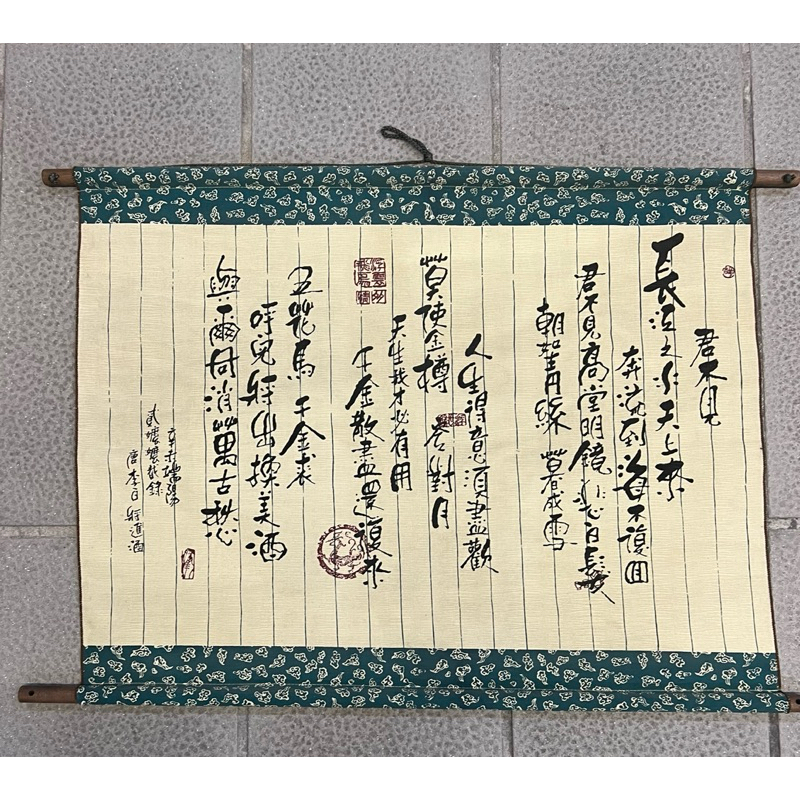 君不見
長江之水天上來
奔流到海不復回
君不見高堂明鏡悲白髮
朝如青絲暮成雪
人生得意須盡歡
莫使金樽空對月
天生我才必有用
千金散盡還復來
五花馬千金裘
呼兒將出換美酒
與爾同消萬古愁
端陽
錄
唐李白將進酒